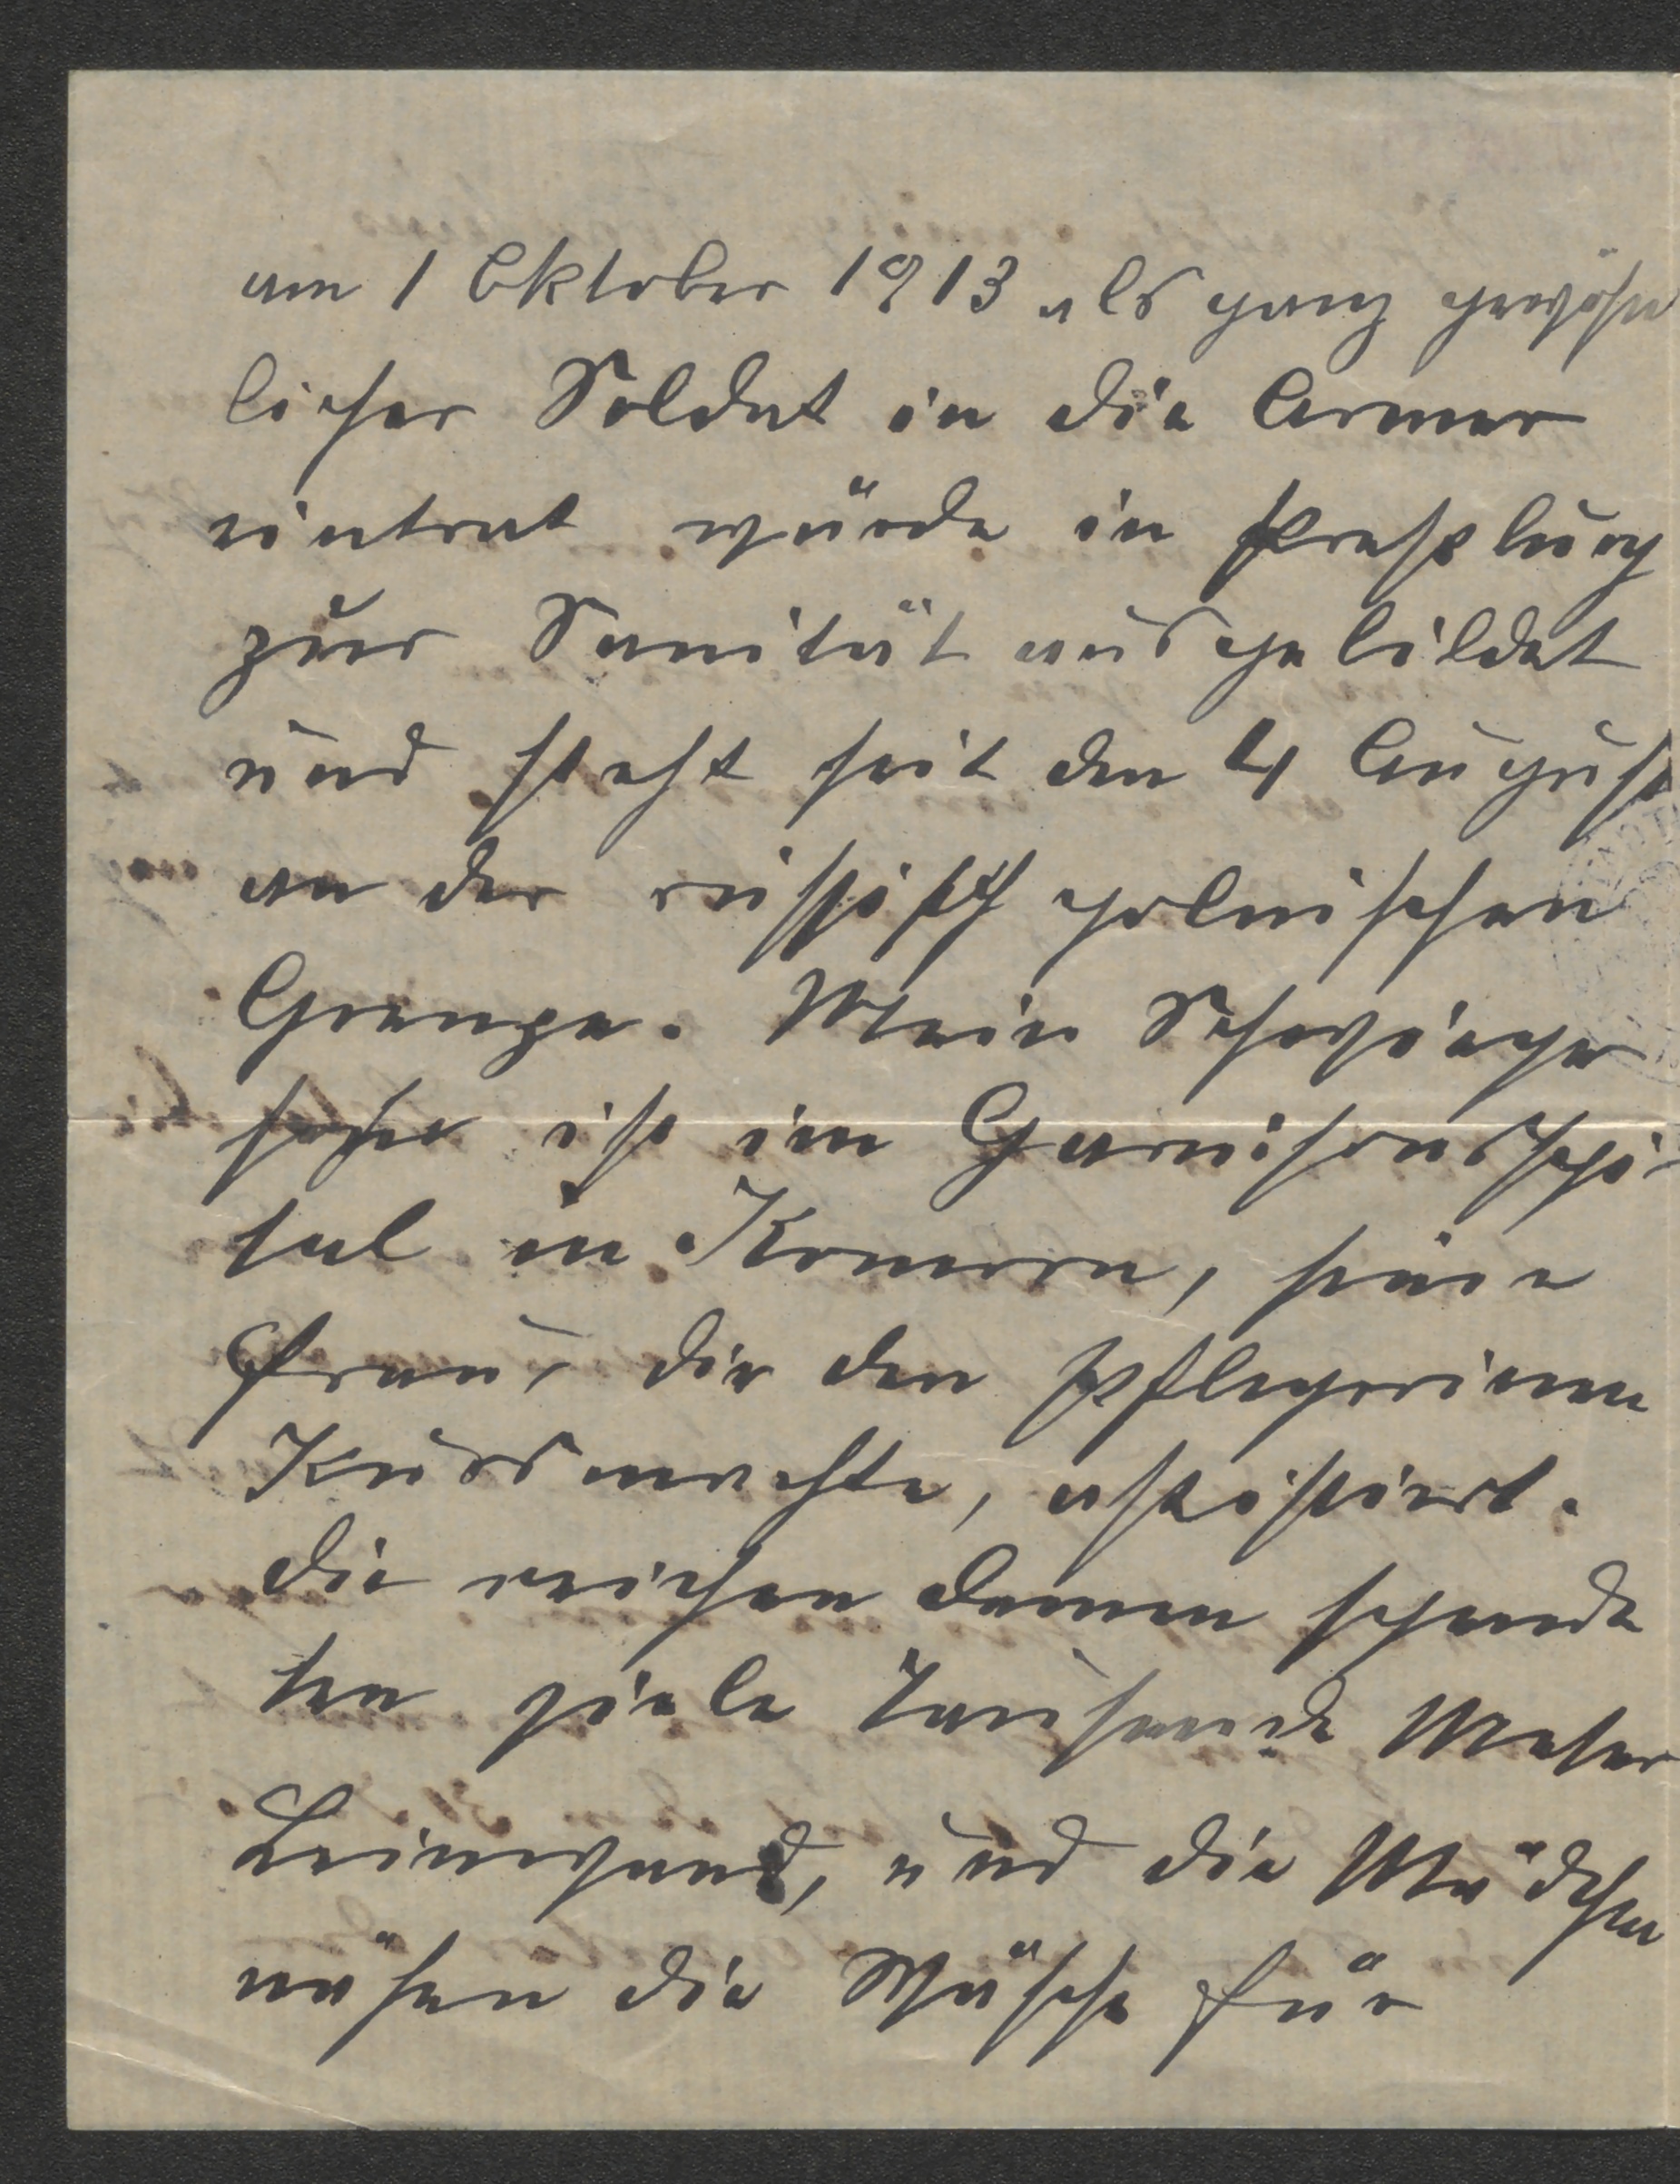 am 1 Oktober 1913 als ganz gewöhn
licher Soldat in die Armee
eintrat wurde in Pressburg
zur Sanität ausgebildet
und steht seit den 4 August
an der russisch polnischen
Grenze. Mein Schwieger
sohn ist im Garnisonsspi-
tal in Komorn, seine
Frau, die den Pflegerinnen
Kurs machte, assistiert.
Die reichen Damen spende
ten viele Tausende Meter
Leinwand, und die Mädchen
nähen die Wäsche für